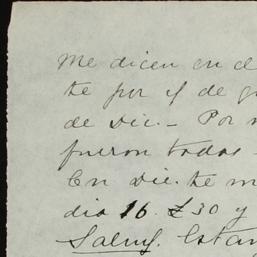 Me dicen en el
te por if de g
de Dic. — Por
fueron todas -
En Dic. te m
dia 16. £30 y
Salmy. Estan